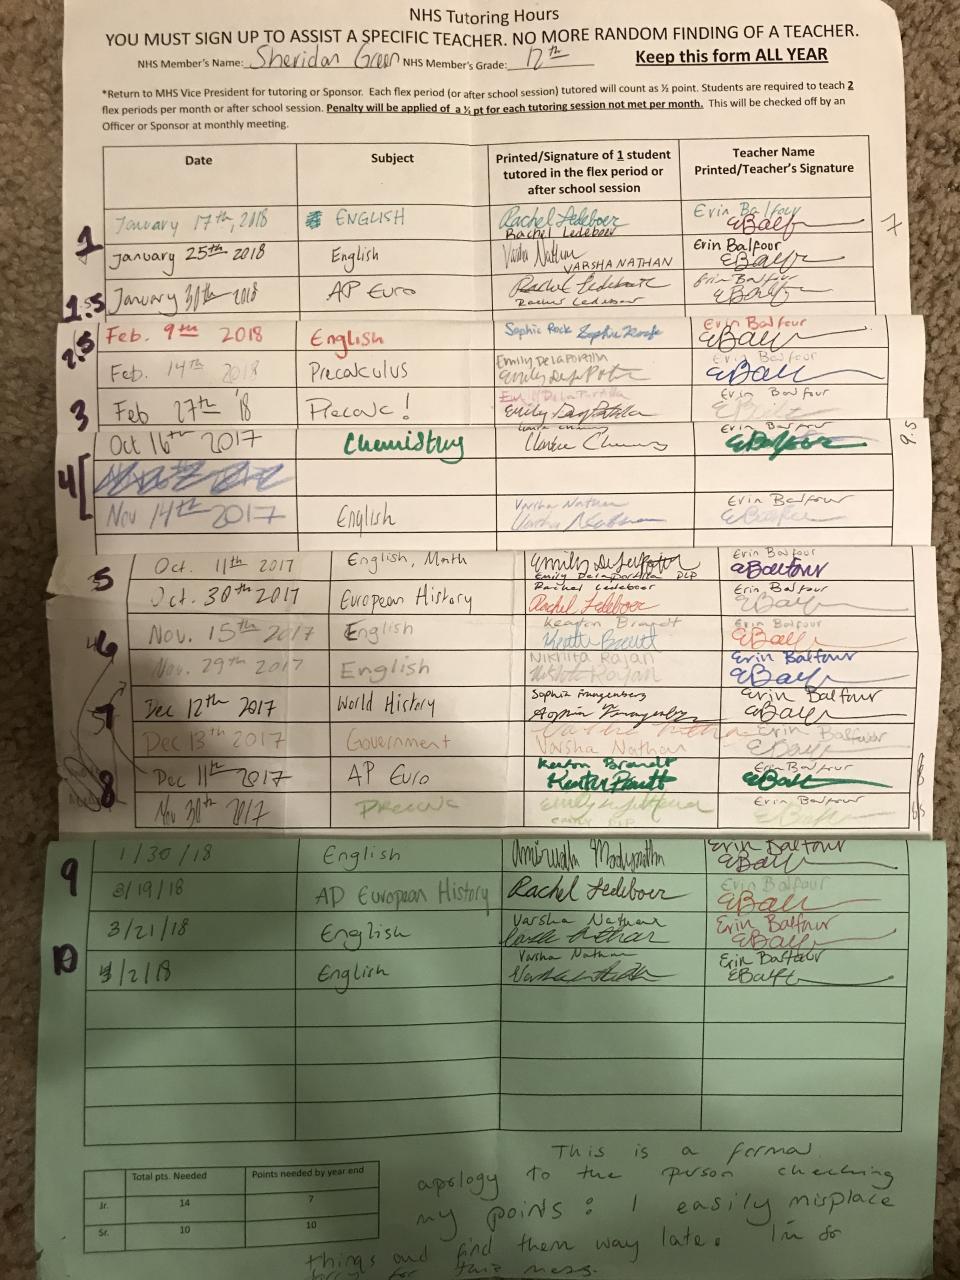 NHS Tutoring Hours
YOU MUST SIGN UP TO ASSIST A SPECIFIC TEACHER. NO MORE RANDOM FINDING OF A TEACHER.
NHS Member's Name: Sheridan Green NHS Member's Grade: 12th Keep this form ALL YEAR
*Return to MHS Vice President for tutoring or Sponsor. Each flex period (or after school session) tutored will count as ½ point. Students are required to teach 2
flex periods per month or after school session. Penalty will be applied of a ½ pt for each tutoring session not met per month. This will be checked off by an
Officer or Sponsor at monthly meeting.
Date Subject Printed/Signature of 1 student tutored in the flex period or after school session Teacher Name Printed/Teacher's Signature
January 17th, 2018 ENGLISH Rachel Ledeboer Erin Balfour 7
1 Rachel Ledeboer EBalf
January 25th 2018 English Varsha Nathan VARSHA NATHAN Erin Balfour EBalf
1.5 January 30th 2018 AP Euro Rachel Ledeboer Rachel Ledeboer Erin Balfour EBalf
2.5 Feb. 9th 2018 English Sophie Rock Sophie Rock Erin Balfour EBalf
Feb. 14th 2018 Precalculus Emily DeLaPortilla Erin Balfour EBalf
3 Feb 27th '18 Precalc! Emily DeLaPortilla Erin Balfour
Oct 16th 2017 Chemistry Erin Balfour EBalfour 9.5
4
Nov 14th 2017 English Varsha Nathan Varsha Nathan Erin Balfour EBalfour
5 Oct. 11th 2017 English, Math Emily DeLaPortilla DLP Erin Balfour EBalfour
Oct. 30th 2017 European History Rachel Ledeboer Rachel Ledeboer Erin Balfour EBalf
6 Nov. 15th 2017 English Keaton Brandt Keaton Brandt Erin Balfour EBalf
Nov. 29th 2017 English Nikhita Rajan Erin Balfour EBalf
7 Dec 12th 2017 World History Sophia Frangenberg Sophia Frangenberg Erin Balfour EBalf
Dec 13th 2017 Government Varsha Nathan Varsha Nathan Erin Balfour EBalf
8 Dec 11th 2017 AP Euro Keaton Brandt Keaton Brandt Erin Balfour EBalf
Nov 30th 2017 Precalc Emily DLP Erin Balfour
9 1/30/18 English Erin Balfour EBalf
3/19/18 AP European History Rachel Ledeboer Erin Balfour EBalf
3/21/18 English Varsha Nathan Varsha Nathan Erin Balfour EBalf
10 4/2/18 English Varsha Nathan Varsha Nathan Erin Balfour EBalf
This is a formal
apology to the person checking
my points: I easily misplace
things and find them way late. I'm so
sorry for this mess.
Total pts. Needed Points needed by year end
Jr. 14 7
Sr. 10 10